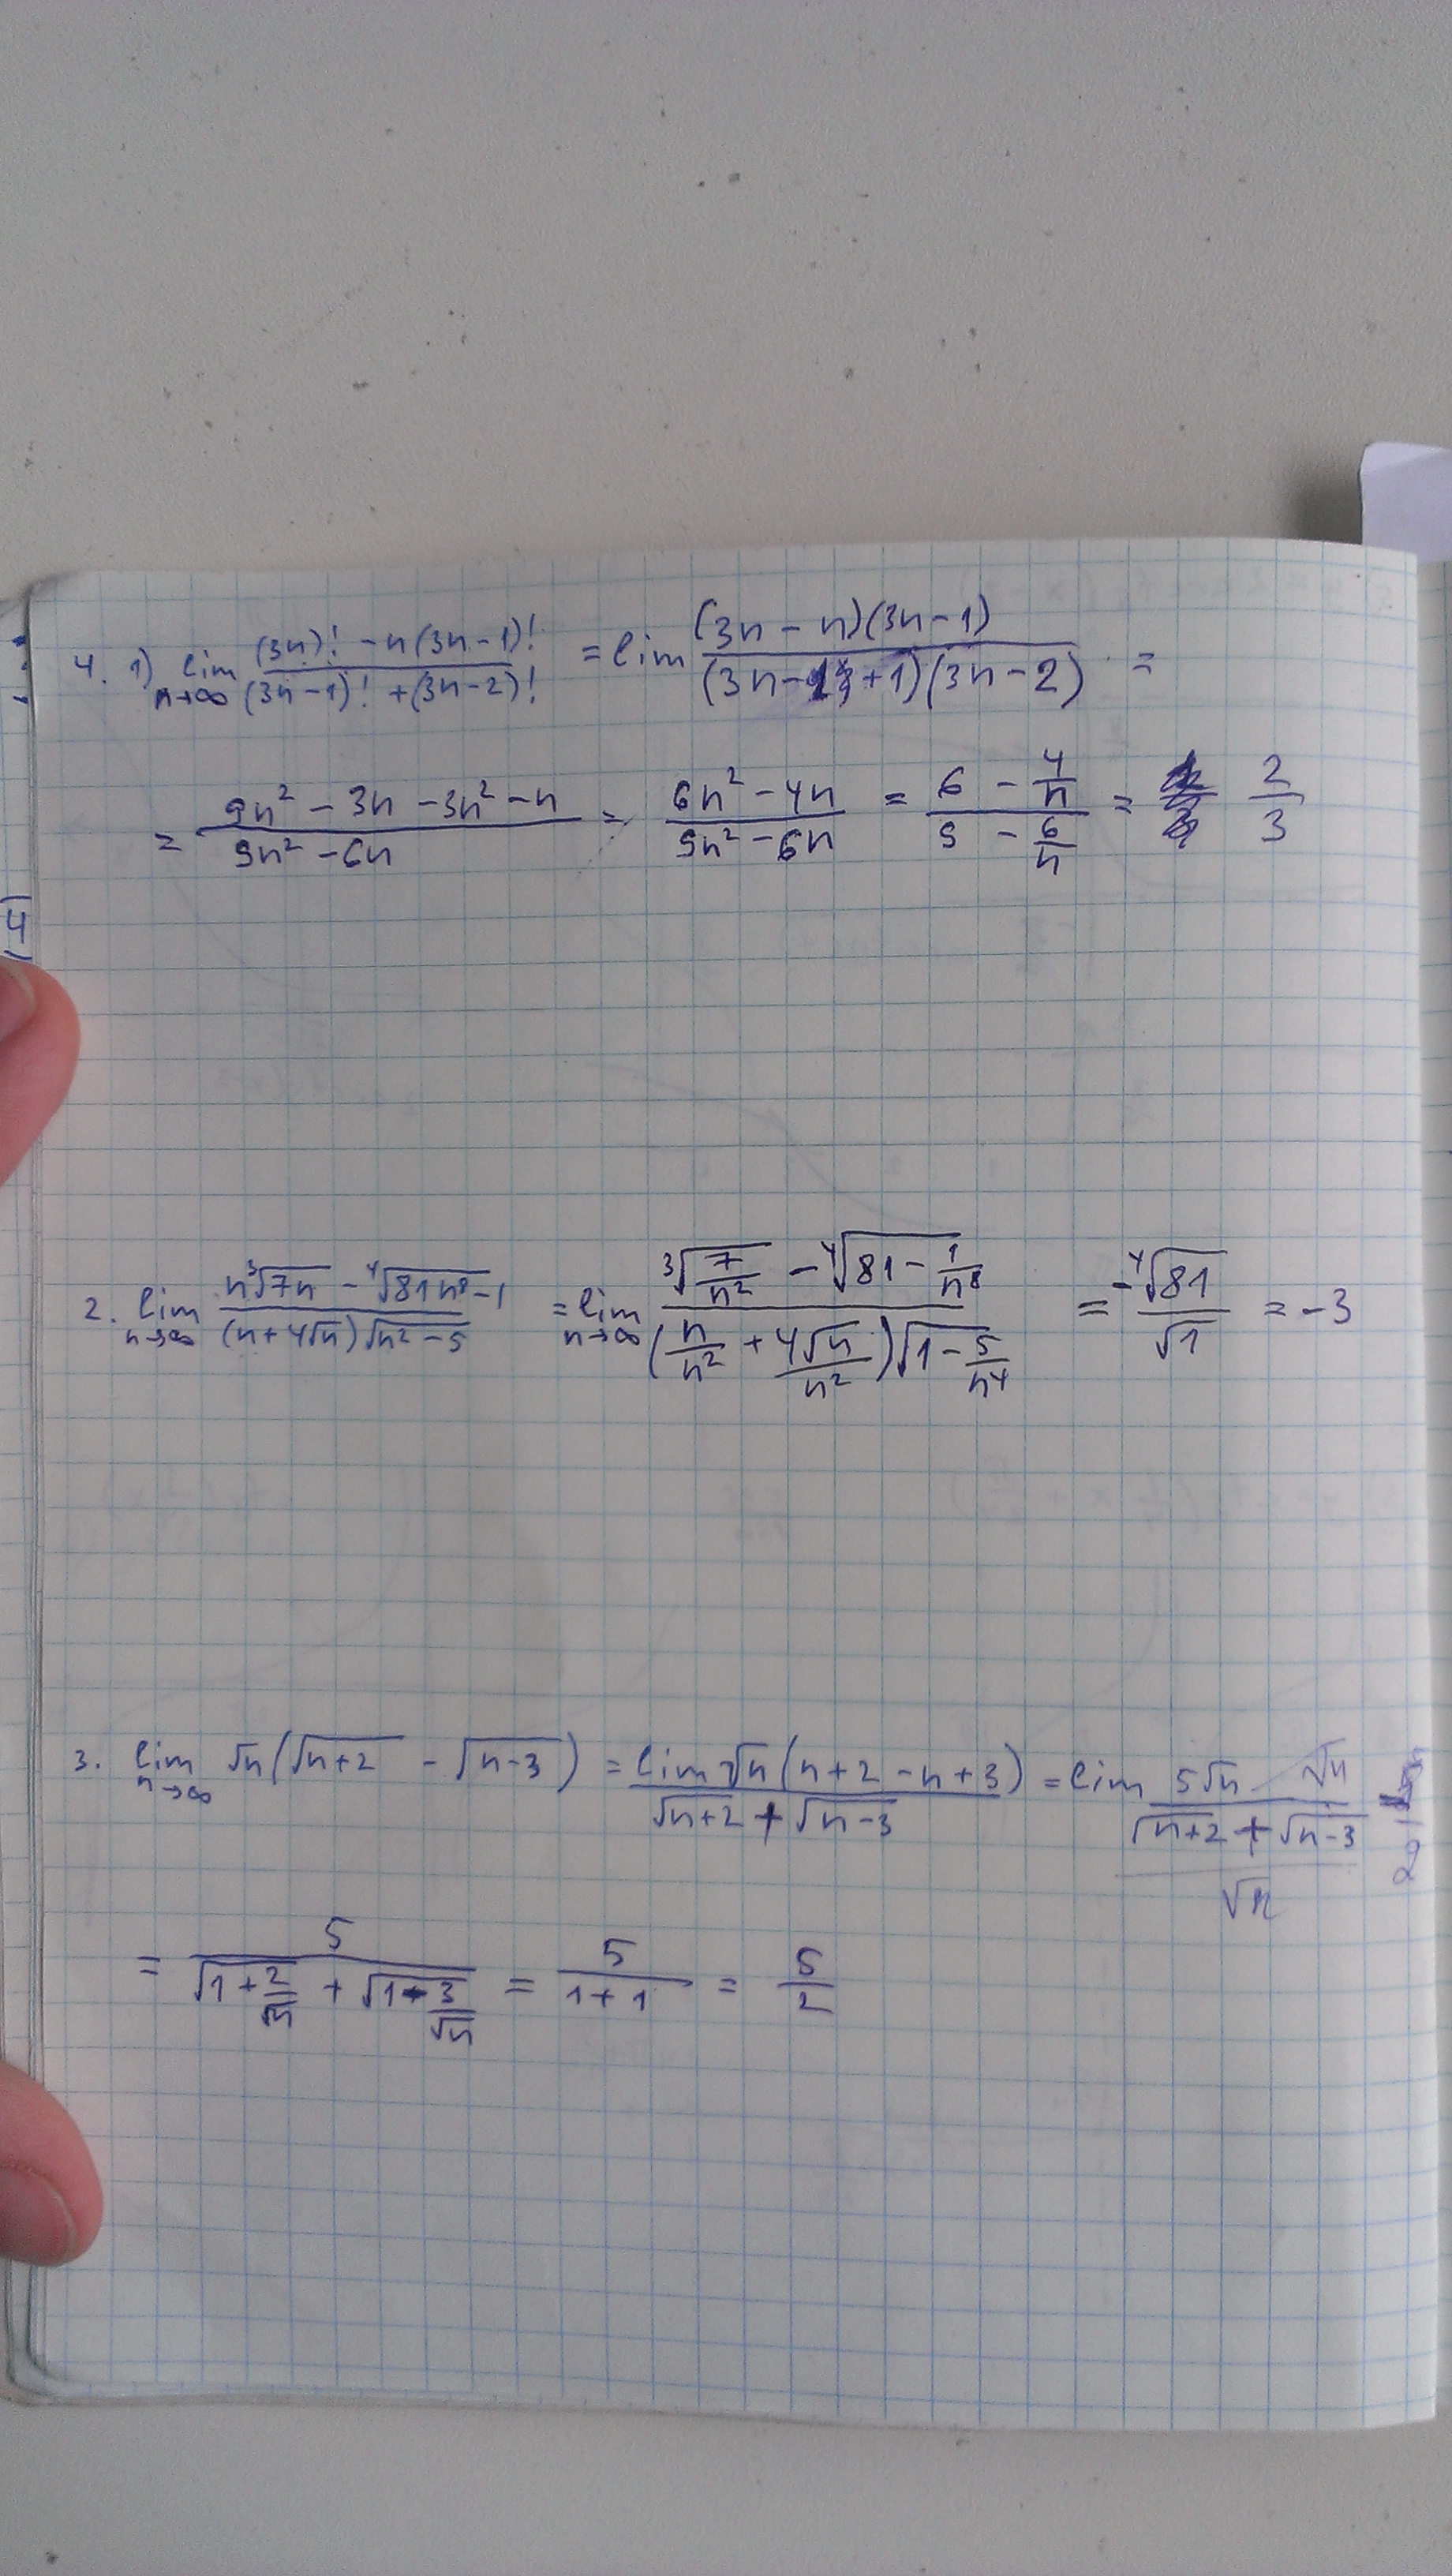 4. 1) lim n→∞ ((3n)! - n(3n-1)!)/((3n-1)! + (3n-2)!) = lim ((3n - n)(3n-1))/((3n - 1 + 1)(3n-2)) =
= (9n² - 3n - 3n² - n)/(9n² - 6n) = (6n² - 4n)/(9n² - 6n) = (6 - 4/n)/(9 - 6/n) = 2/3
4
2. lim n→∞ (n∛7n - ∜81n⁸ - 1)/((n + 4√n)√n² - 5) = lim n→∞ (∛(7/n²) - ∜(81 - 1/n⁸))/((n/n² + 4√n/n²)√(1 - 5/n⁴)) = -∜81/√1 = -3
3. lim n→∞ √n(√n+2 - √n-3) = lim √n(n+2-n+3)/(√n+2 + √n-3) = lim 5√n √n/(√n+2 + √n-3)/√n
= 5/(√(1 + 2/√n) + √(1 - 3/√n)) = 5/(1+1) = 5/2